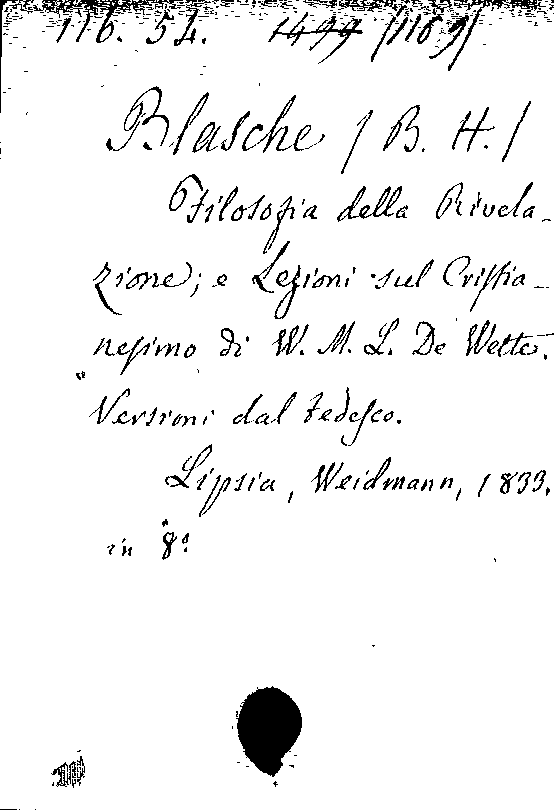 116. 54. 1499 (1169)
Blasche / B. H. /
Filosofia della Rivela-
zione; e Lezioni sul Cristia-
nesimo di W. M. L. De Wette.
Versioni dal tedesco.
Lipsia, Weidmann, 1833.
in 8º